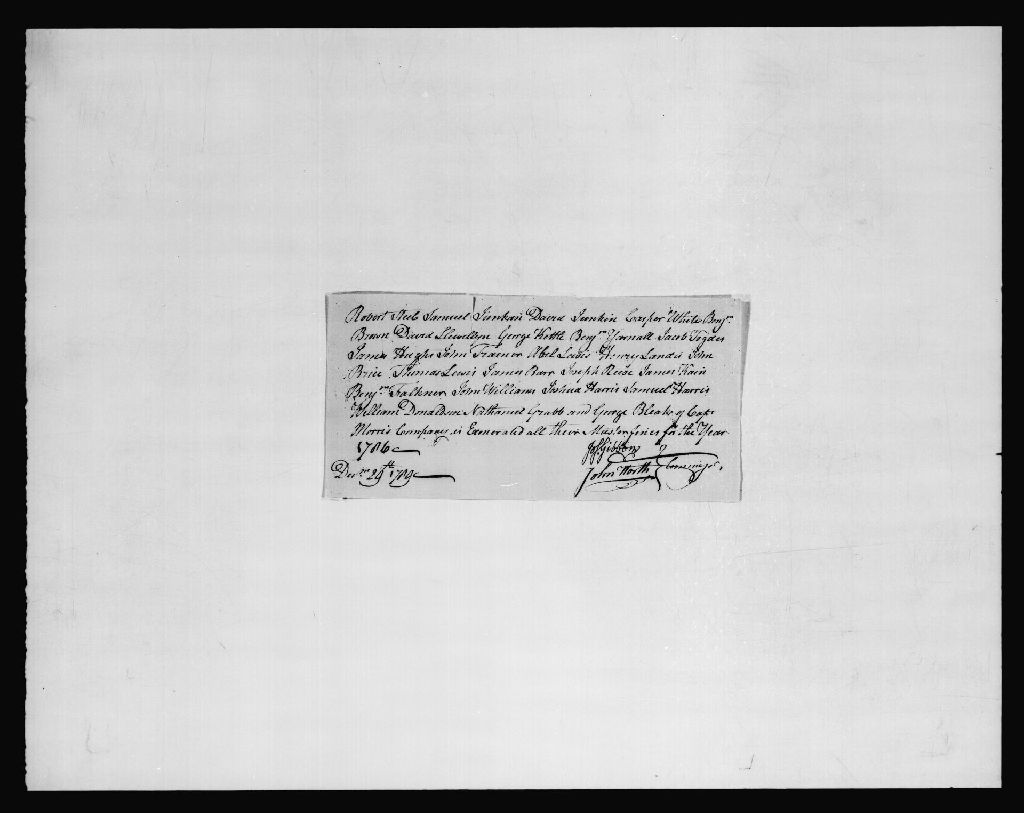 Robert Steel Samuel Junkin David Junkin Casper White Benjn.
Brown David Llewellyn George Kettle Benjn. Yarnall Jacob
James Hughs John Trainor Abel Lewis Henry Landis John
Brice Thomas Lewis James Barr Joseph Reese James Kain
Benjn. Falkner John Williams Joshua Harris Samuel Harris
William Donaldson Nathaniel Grubb and George of Capt
Morris Company is Exonerated all their Muster fines for the Year
1786
Jos. Gibbons
Decr. 29th
John North